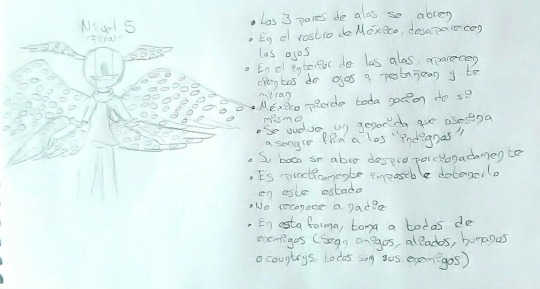 Nivel 5
Final
• Los 3 pares de alas se abren
• En el rostro de México, desaparecen
los ojos
• En el interior de las alas, aparecen
cientos de ojos q pestañean y te
miran
• México pierde toda noción de sí
mismo
• Se vuelve un genocida que asesina
a sangre fría a los "indignos"
• Su boca se abre desproporcionadamente
• Es practicamente imposible detenerlo
en este estado
• No reconoce a nadie
• En esta forma, toma a todos de
enemigos (Sean amigos, aliados, humanos
o countrys, todos son sus enemigos)